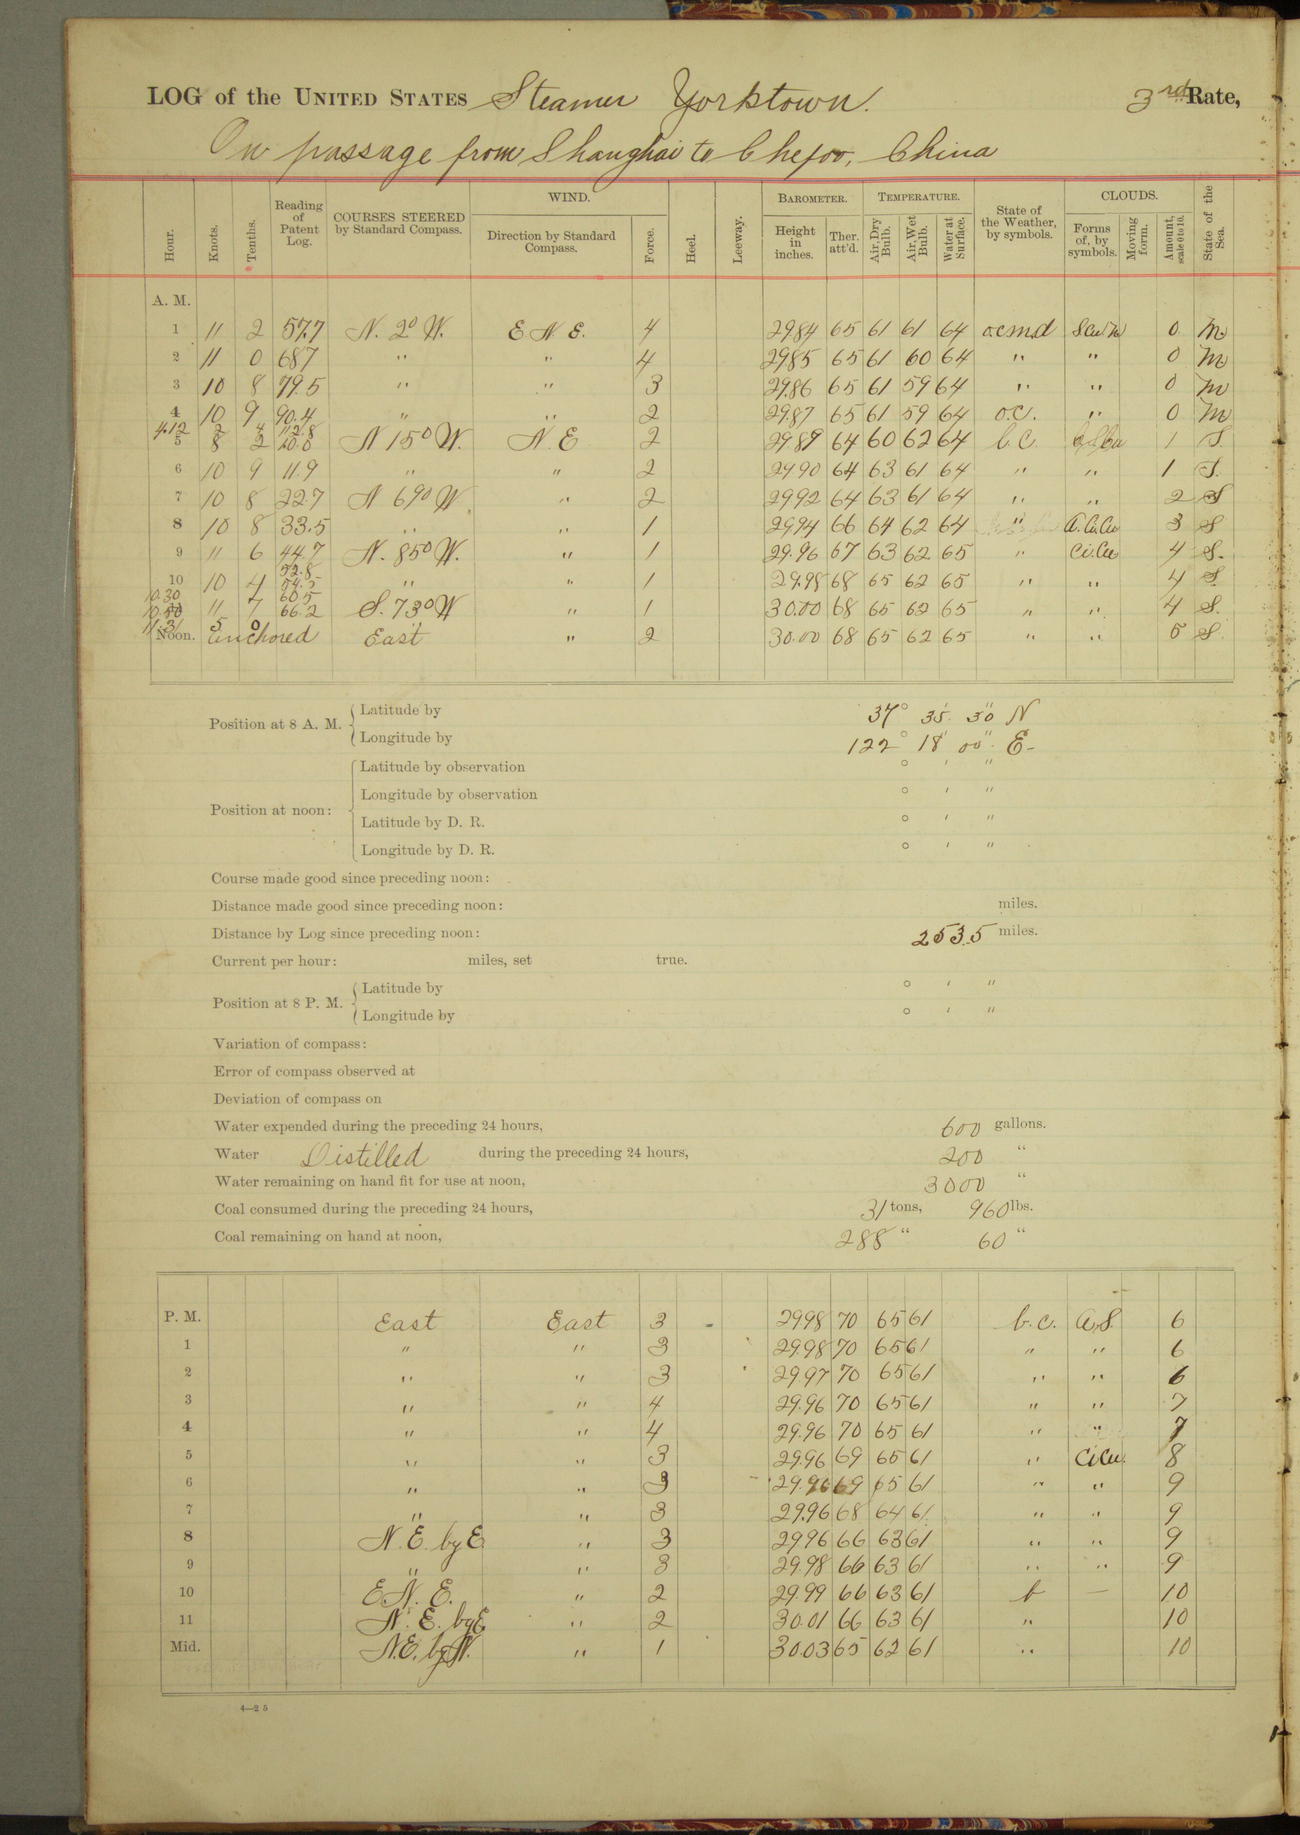 LOG of the UNITED STATES Steamer Yorktown. 3rd Rate,
On passage from Shanghai to Chefoo, China
Hour. Knots. Tenths. Reading of Patent Log. COURSES STEERED by Standard Compass. WIND. Direction by Standard Compass. Force. Heel. Leeway. BAROMETER. Height in inches. Ther. att'd. TEMPERATURE. Air, Dry Bulb. Air, Wet Bulb. Water at Surface. State of the Weather, by symbols. CLOUDS. Forms of, by symbols. Moving form. Amount, scale 0 to 10. State of the Sea.
A. M.
1 11 2 57.7 N. 2° W. E N E. 4 29.84 65 61 61 64 ocmd 0 M
2 11 0 68.7 " " 4 29.85 65 61 60 64 " " 0 M
3 10 8 79.5 " " 3 29.86 65 61 59 64 " " 0 M
4 10 9 90.4 " " 2 29.87 65 61 59 64 o.c. " 0 M
4.12 2
5 8 2 N 15° W. N. E. 2 29.89 64 60 62 64 b.c. 1 S.
6 10 9 11.9 " " 2 29.90 64 63 61 64 " " 1 S.
7 10 8 22.7 N 69° W. " 2 29.92 64 63 61 64 " " 2 S
8 10 8 33.5 " " 1 29.94 66 64 62 64 " A.Cu.Cu 3 S
9 11 6 44.7 N. 85° W. " 1 29.96 67 63 62 65 " Ci.Cu 4 S.
52.8
10 10 4 54.5 " " 1 29.98 68 65 62 65 " " 4 S.
10.30 60.5
11 7 66.2 S. 73° W " 1 30.00 68 65 62 65 " " 4 S.
11.31 5 0
Noon. anchored East " 2 30.00 68 65 62 65 " " 5 S.
Position at 8 A. M. Latitude by 37° 35' 30" N
Longitude by 122° 18' 00" E-
Position at noon: Latitude by observation ° ' "
Longitude by observation ° ' "
Latitude by D. R. ° ' "
Longitude by D. R. ° ' "
Course made good since preceding noon:
Distance made good since preceding noon: miles.
Distance by Log since preceding noon: 253.5 miles.
Current per hour: miles, set true.
Position at 8 P. M. Latitude by ° ' "
Longitude by ° ' "
Variation of compass:
Error of compass observed at
Deviation of compass on
Water expended during the preceding 24 hours, 600 gallons.
Water Distilled during the preceding 24 hours, 200 "
Water remaining on hand fit for use at noon, 3000 "
Coal consumed during the preceding 24 hours, 31 tons, 960 lbs.
Coal remaining on hand at noon, 288 " 60 "
P. M. East East 3 29.98 70 65 61 b.c. A.S. 6
1 " " 3 29.98 70 65 61 " " 6
2 " " 3 29.97 70 65 61 " " 6
3 " " 4 29.96 70 65 61 " " 7
4 " " 4 29.96 70 65 61 " " 7
5 " " 3 29.96 69 65 61 " CiCu. 8
6 " " 3 29.96 69 65 61 " " 9
7 " " 3 29.96 68 64 61 " " 9
8 N. E. by E " 3 29.96 66 63 61 " " 9
9 " " 3 29.98 66 63 61 " " 9
10 E. N. E. " 2 29.99 66 63 61 b — 10
11 N. E. by E " 2 30.01 66 63 61 " 10
Mid. N.E. by N. " 1 30.03 65 62 61 " 10
4—2 5